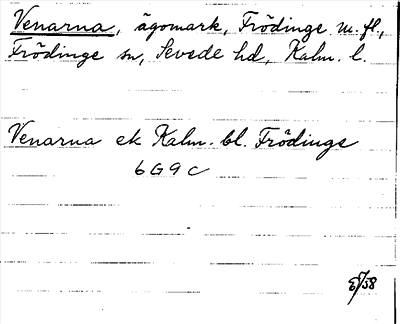 Venarna, ägomark, Frödinge m. fl.,
Frödinge sn, Sevede hd, Kalm. l.
Venarna ek Kalm. bl. Frödinge
6G9c
/58